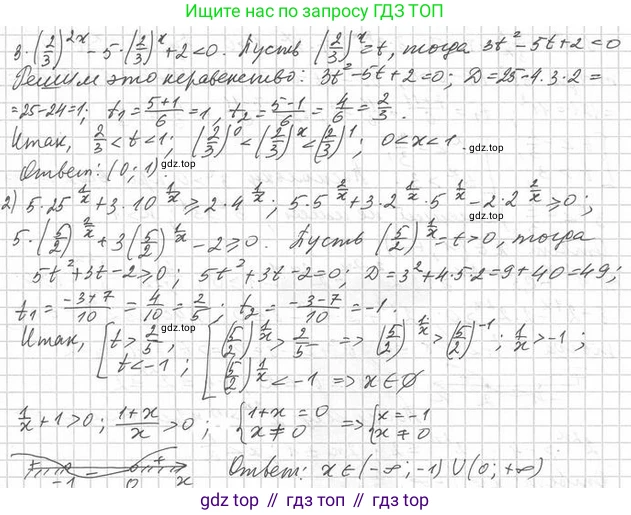 Ищите нас по запросу ГДЗ ТОП
3·(2/3)^(2x) - 5·(2/3)^x + 2 < 0. Пусть (2/3)^x = t, тогда 3t² - 5t + 2 < 0
Решим это неравенство: 3t² - 5t + 2 = 0; D = 25 - 4·3·2 =
= 25 - 24 = 1; t₁ = (5+1)/6 = 1, t₂ = (5-1)/6 = 4/6 = 2/3.
Итак, 2/3 < t < 1; (2/3)^0 < (2/3)^x < (2/3)^1; 0 < x < 1
gdz.top
Ответ: (0; 1).
gdz.top
2) 5·25^(1/x) + 3·10^(1/x) ≥ 2·4^(1/x); 5·5^(2/x) + 3·2^(1/x)·5^(1/x) - 2·2^(2/x) ≥ 0;
5·(5/2)^(2/x) + 3(5/2)^(1/x) - 2 ≥ 0. Пусть (5/2)^(1/x) = t > 0, тогда
gdz.top
5t² + 3t - 2 ≥ 0; 5t² + 3t - 2 = 0; D = 3² + 4·5·2 = 9 + 40 = 49;
t₁ = (-3+7)/10 = 4/10 = 2/5; t₂ = (-3-7)/10 = -1.
gdz.top
Итак, [t > 2/5, t < -1; [(5/2)^(1/x) > 2/5 => (5/2)^(1/x) > (5/2)^(-1); 1/x > -1;
(5/2)^(1/x) < -1 => x ∈ ∅
1/x + 1 > 0; (1+x)/x > 0; {1+x = 0 x ≠ 0 => {x = -1 x ≠ 0
+ -1 - 0 + x Ответ: x ∈ (-∞; -1) ∪ (0; +∞)
gdz.top
gdz top // gdz top // gdz.top